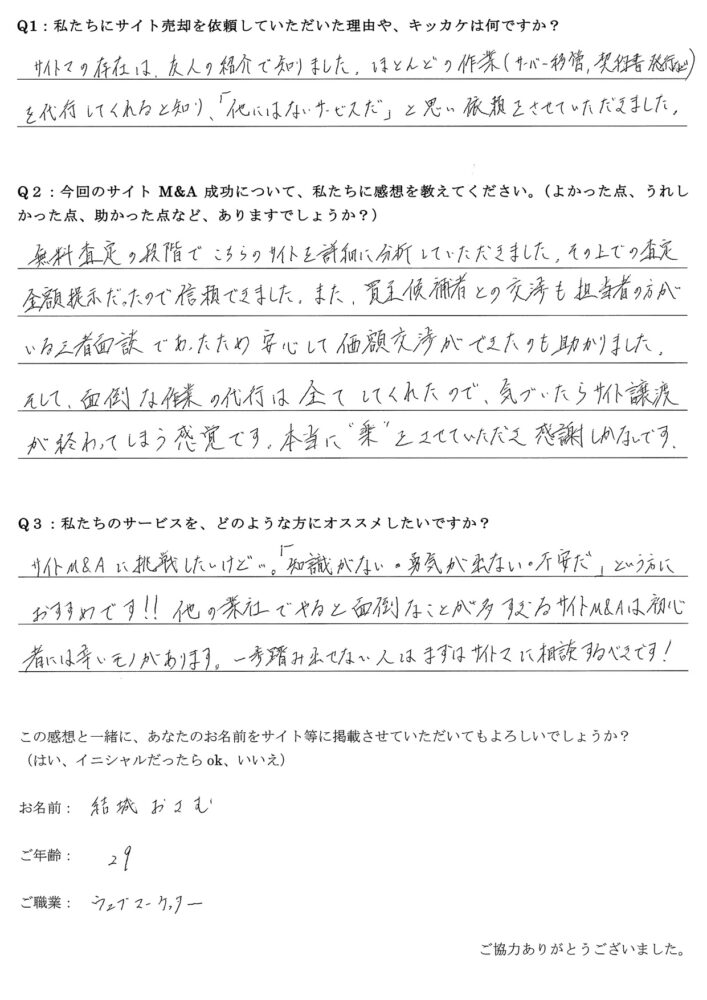 Q1：私たちにサイト売却を依頼していただいた理由や、キッカケは何ですか？
サイトマの存在は、友人の紹介で知りました。ほとんどの作業(サーバー移管、契約書発行など)
を代行してくれると知り、「他にはないサービスだ」と思い依頼をさせていただきました。
Q2：今回のサイト M&A 成功について、私たちに感想を教えてください。（よかった点、うれし
かった点、助かった点など、ありますでしょうか？）
無料査定の段階でこちらのサイトを詳細に分析していただきました。その上での査定
金額提示だったので信頼できました。また、買主候補者との交渉も担当者の方が
いる三者面談であったため安心して価額交渉ができたのも助かりました。
そして、面倒な作業の代行は全てしてくれたので、気づいたらサイト譲渡
が終わってしまう感覚です。本当に"楽"をさせていただき感謝しかないです。
Q3：私たちのサービスを、どのような方にオススメしたいですか？
サイトM&Aに挑戦したいけど…。「知識がない・勇気が出ない・不安だ」という方に
おすすめです!! 他の業社でやると面倒なことが多すぎるサイトM&Aは初心
者には辛いモノがあります。一歩踏み出せない人はまずはサイトマに相談するべきです!
この感想と一緒に、あなたのお名前をサイト等に掲載させていただいてもよろしいでしょうか？
（はい、イニシャルだったら ok、いいえ）
お名前： 結城 おさむ
ご年齢： 29
ご職業： ウェブマーケッター
ご協力ありがとうございました。